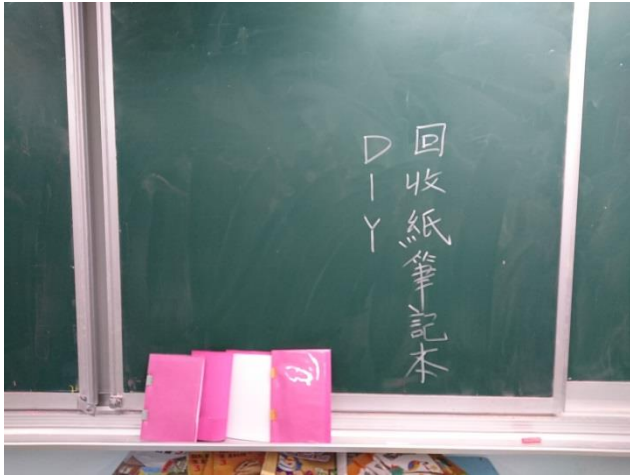 回收紙筆記本
DIY